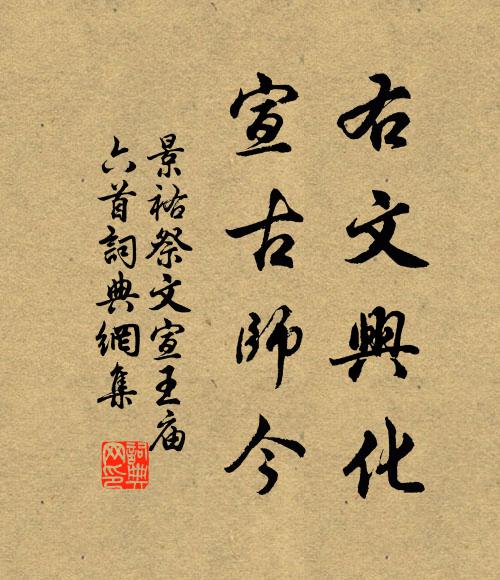 右文興化
宣古師今
景祐祭文宣王庙
六首詞典網集
詞典
网印